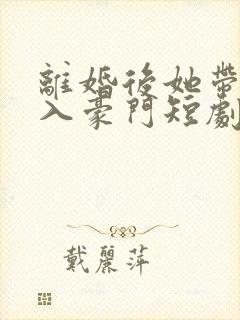 離婚後她帶
入豪門短劇
戴麗萍